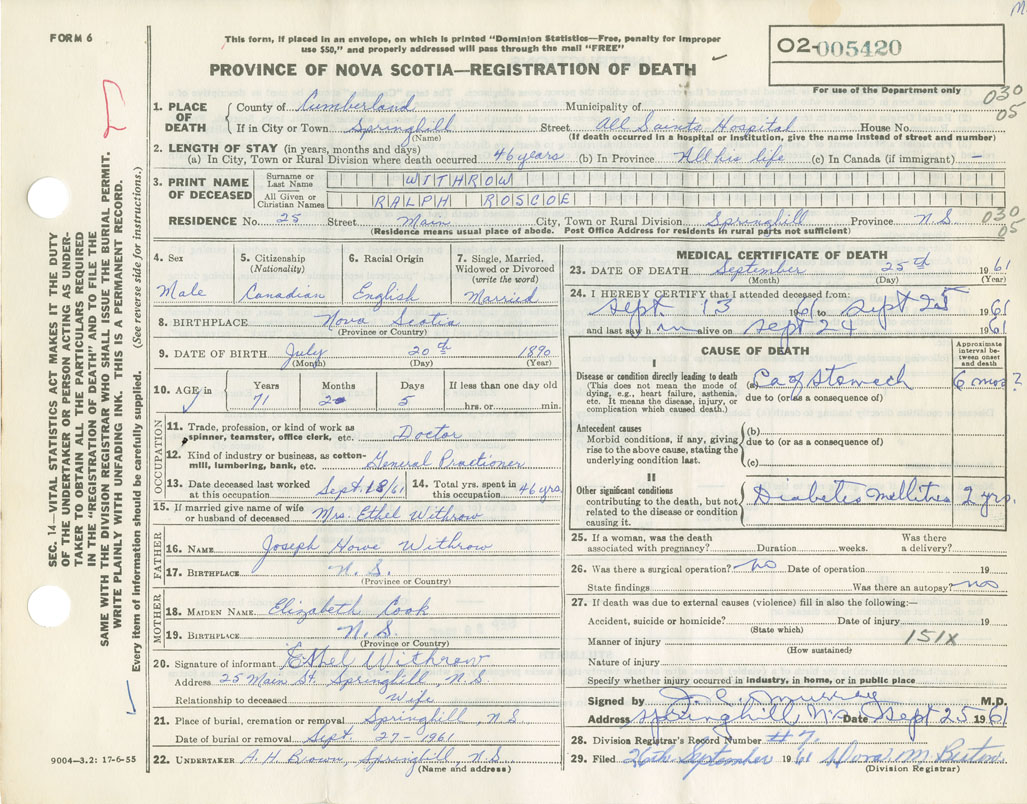 FORM 6
This form, if placed in an envelope, on which is printed "Dominion Statistics—Free, penalty for improper
use $50," and properly addressed will pass through the mail "FREE"
PROVINCE OF NOVA SCOTIA—REGISTRATION OF DEATH
02-005420
For use of the Department only
030
05
SEC. 14—VITAL STATISTICS ACT MAKES IT THE DUTY
OF THE UNDERTAKER OR PERSON ACTING AS UNDER-
TAKER TO OBTAIN ALL THE PARTICULARS REQUIRED
IN THE "REGISTRATION OF DEATH" AND TO FILE THE
SAME WITH THE DIVISION REGISTRAR WHO SHALL ISSUE THE BURIAL PERMIT.
WRITE PLAINLY WITH UNFADING INK. THIS IS A PERMANENT RECORD.
Every item of information should be carefully supplied. (See reverse side for instructions.)
1. PLACE OF DEATH County of Cumberland Municipality of
If in City or Town Springhill Street All Saints Hospital House No.
(Name) (If death occurred in a hospital or institution, give the name instead of street and number)
2. LENGTH OF STAY (in years, months and days)
(a) In City, Town or Rural Division where death occurred 46 years (b) In Province All his life (c) In Canada (if immigrant) —
3. PRINT NAME OF DECEASED Surname or Last Name WITHROW
All Given or Christian Names RALPH ROSCOE
RESIDENCE No. 25 Street Main City, Town or Rural Division Springhill Province N S
030
05
(Residence means usual place of abode. Post Office Address for residents in rural parts not sufficient)
4. Sex 5. Citizenship (Nationality) 6. Racial Origin 7. Single, Married, Widowed or Divorced (write the word)
Male Canadian English Married
8. BIRTHPLACE Nova Scotia
(Province or Country)
9. DATE OF BIRTH July 20th 1890
(Month) (Day) (Year)
10. AGE in Years Months Days If less than one day old
71 2 5 hrs. or min.
OCCUPATION
11. Trade, profession, or kind of work as spinner, teamster, office clerk, etc. Doctor
12. Kind of industry or business, as cotton-mill, lumbering, bank, etc. General Practioner
13. Date deceased last worked at this occupation Sept. 13/61 14. Total yrs. spent in this occupation 46 yrs.
15. If married give name of wife or husband of deceased Mrs. Ethel Withrow
FATHER
16. NAME Joseph Howe Withrow
17. BIRTHPLACE N. S.
(Province or Country)
MOTHER
18. MAIDEN NAME Elizabeth Cook
19. BIRTHPLACE N. S.
(Province or Country)
20. Signature of informant Ethel Withrow
Address 25 Main St. Springhill, N S
Relationship to deceased Wife
21. Place of burial, cremation or removal Springhill, N S
Date of burial or removal Sept. 27-1961
22. UNDERTAKER A. H. Brown, Springhill, N S
(Name and address)
9004—3.2: 17-6-55
MEDICAL CERTIFICATE OF DEATH
23. DATE OF DEATH September 25th 1961
(Month) (Day) (Year)
24. I HEREBY CERTIFY that I attended deceased from:
Sept. 13 1961 to Sept 25 1961
and last saw him alive on Sept 24 1961
CAUSE OF DEATH
Approximate interval between onset and death
I
Disease or condition directly leading to death (a) Ca of Stomech 6 mos?
(This does not mean the mode of dying, e.g., heart failure, asthenia, etc. It means the disease, injury, or complication which caused death.) due to (or as a consequence of)
Antecedent causes (b)
Morbid conditions, if any, giving rise to the above cause, stating the underlying condition last. due to (or as a consequence of)
(c)
II
Other significant conditions Diabetes Mellitres 2 yrs.
contributing to the death, but not related to the disease or condition causing it.
25. If a woman, was the death associated with pregnancy? Duration weeks. Was there a delivery?
26. Was there a surgical operation? no Date of operation 19
State findings Was there an autopsy? no
27. If death was due to external causes (violence) fill in also the following:—
Accident, suicide or homicide? Date of injury 19
(State which)
Manner of injury 151X
(How sustained)
Nature of injury
Specify whether injury occurred in industry, in home, or in public place
Signed by J. C. Murray M.D.
Address Springhill, N.S. Date Sept 25 1961
28. Division Registrar's Record Number #7.
29. Filed 26th September 1961
(Division Registrar)